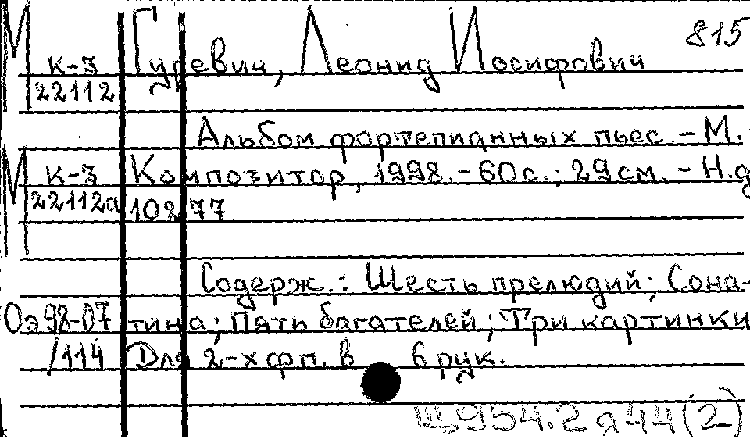 815
М К-3 Гуревич, Леонид Иосифович
22112
Альбом фортепианных пьес - М.
М К-3 Композитор, 1998. - 60с.; 29см. - Н.д
22112а 10277
Содерж.: Шесть прелюдий; Сона-
Оэ98-07 тина; Пять багателей; Три картинки
/114 Для 2-х фп. в 6 рук.
Щ954.2я44(2)